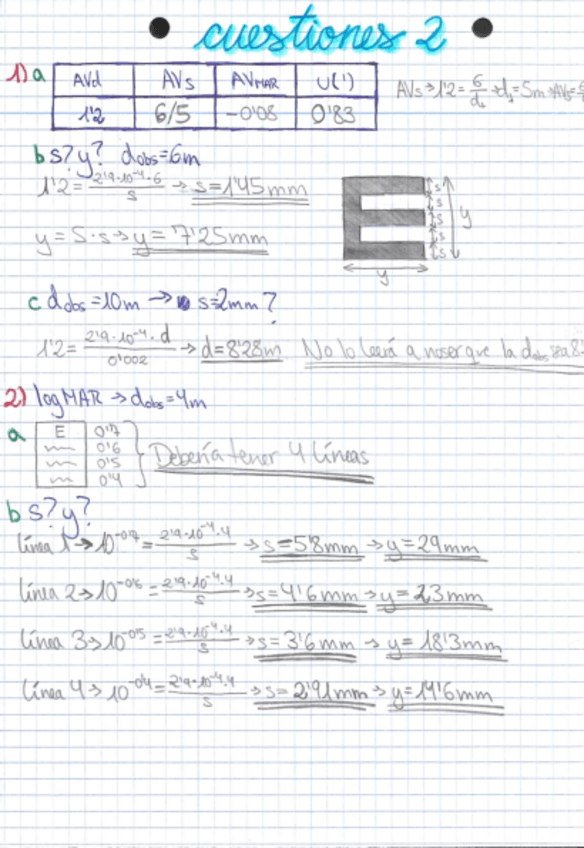 cuestiones 2
1) a AVd AVs AVMAR U(') AVs → 1'2 = 6/ds → ds = 5m → AVs =
1'2 6/5 -0'08 0'83
b s? y? dobs = 6m
1'2 = 2'9·10⁻⁴·6/s → s = 1'45mm
y = 5·s → y = 7'25mm
s
s
s
s
s
y
y
c dobs = 10m → s = 2mm?
1'2 = 2'9·10⁻⁴·d/0'002 → d = 8'28m No lo leerá a no ser que la dobs sea 8'
2) logMAR → dobs = 4m
a E 0'7
0'6
0'5
0'4
Debería tener 4 líneas
b s? y?
línea 1 → 10⁻⁰'⁷ = 2'9·10⁻⁴·4/s → s = 5'8mm → y = 29mm
línea 2 → 10⁻⁰'⁶ = 2'9·10⁻⁴·4/s → s = 4'6mm → y = 23mm
línea 3 → 10⁻⁰'⁵ = 2'9·10⁻⁴·4/s → s = 3'6mm → y = 18'3mm
línea 4 → 10⁻⁰'⁴ = 2'9·10⁻⁴·4/s → s = 2'91mm → y = 14'6mm